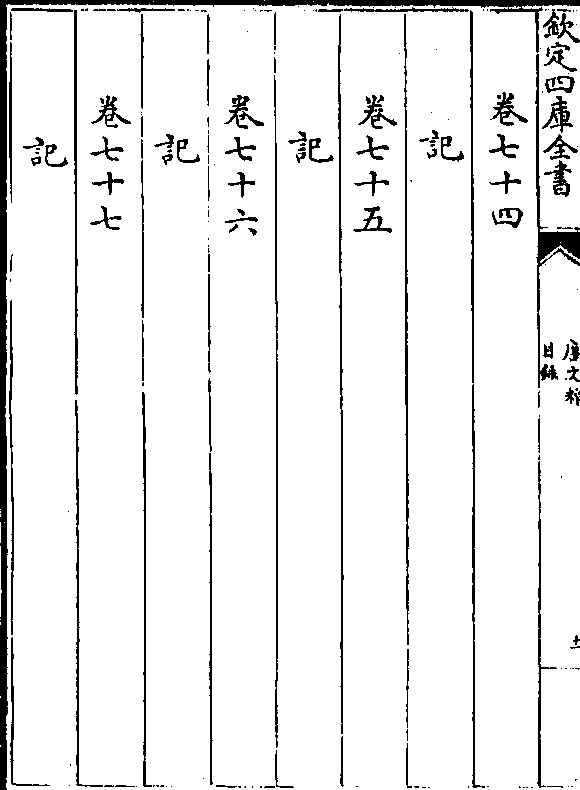 欽定四庫全書
唐文粹
目錄
卷七十四
記
卷七十五
記
卷七十六
記
卷七十七
記